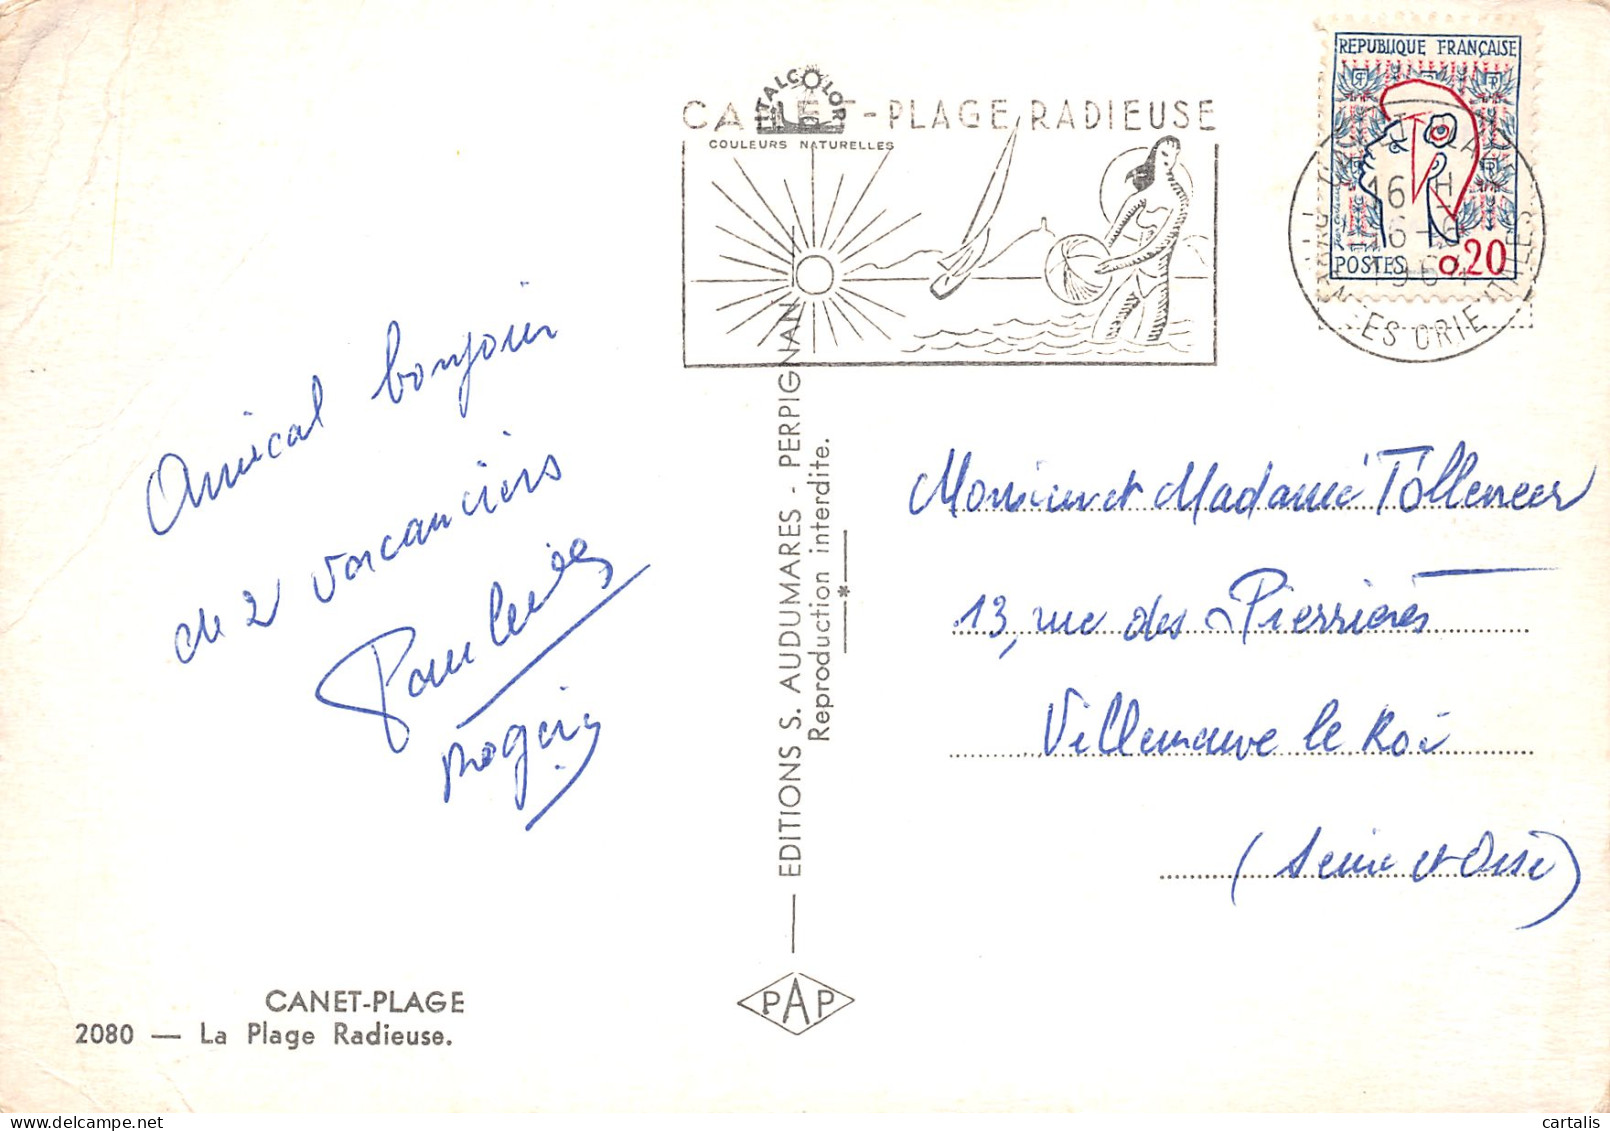 ITALCOLOR
COULEURS NATURELLES
CANET-PLAGE RADIEUSE
REPUBLIQUE FRANÇAISE
POSTES 0,20
16 H
PYRENEES ORIENTALES
Amical bonjour
de 2 vacanciers
Roger
Monsieur et Madame Tolleneer
13, rue des Pierrières
Villeneuve le Roi
(Seine et Oise)
EDITIONS S. AUDUMARES - PERPIGNAN
Reproduction interdite.
*
PAP
CANET-PLAGE
2080 — La Plage Radieuse.
cartalis